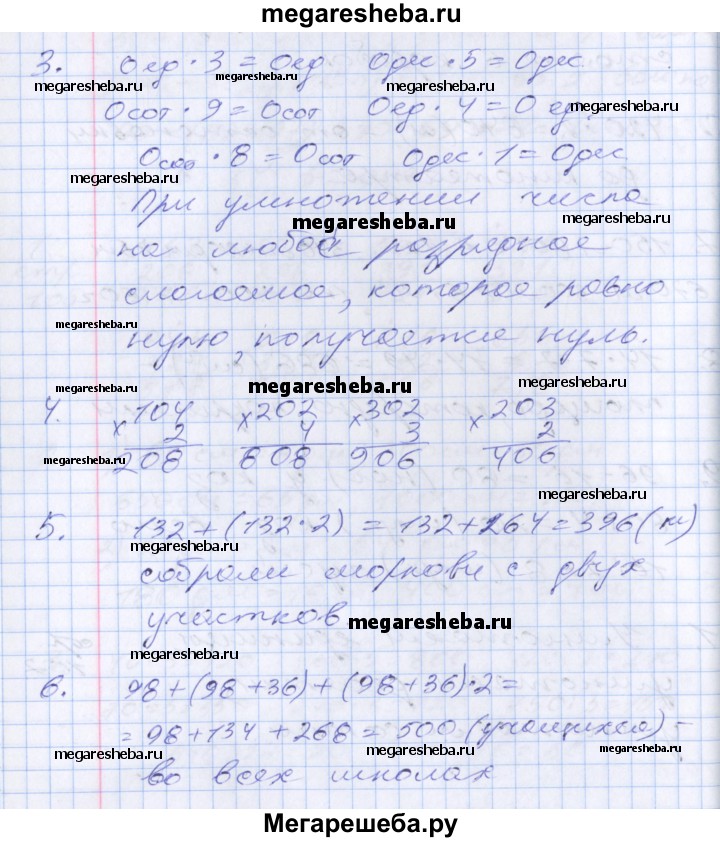 megaresheba.ru
3. 0 ед · 3 = 0 ед 0 дес · 5 = 0 дес
megaresheba.ru megaresheba.ru megaresheba.ru
0 сот · 9 = 0 сот 0 ед · 4 = 0 ед
megaresheba.ru
0 сот · 8 = 0 сот 0 дес · 1 = 0 дес
megaresheba.ru
При умножении числа
megaresheba.ru
на любое разрядное
слагаемое, которое равно
megaresheba.ru
нулю, получается нуль.
megaresheba.ru megaresheba.ru
4. × 104 × 202 × 302 × 203
2 4 3 2
208 808 906 406
megaresheba.ru
megaresheba.ru
5. 132 + (132 · 2) = 132 + 264 = 396 (кг)
megaresheba.ru
собрали моркови с двух
участков
megaresheba.ru
megaresheba.ru
6. 98 + (98 + 36) + (98 + 36) · 2 =
= 98 + 134 + 268 = 500 (учащихся) –
megaresheba.ru megaresheba.ru megaresheba.ru
во всех школах
Мегарешеба.ру